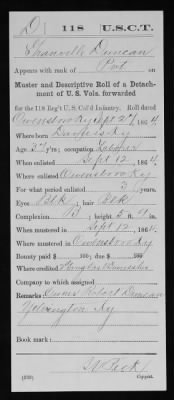 D | 118 | U.S.C.T.
Granville Duncan
Appears with rank of Pvt on
Muster and Descriptive Roll of a Detach-
ment of U. S. Vols. forwarded
for the 118 Reg't U.S. Col'd Infantry. Roll dated
Owensboro Ky Sept 27, 1864.
Where born Ky
Age y'rs; occupation Laborer
When enlisted Sept 12, 1864.
Where enlisted Owensboro Ky
For what period enlisted 3 years.
Eyes Blk; hair Blk
Complexion B; height 5 ft. in.
When mustered in Sept 12, 1864.
Where mustered in Owensboro Ky
Bounty paid $ 100; due $ 100
Where credited
Company to which assigned
Remarks: Owner Robert Duncan
Yelvington Ky
Book mark:
Peck
(339) Copyist.